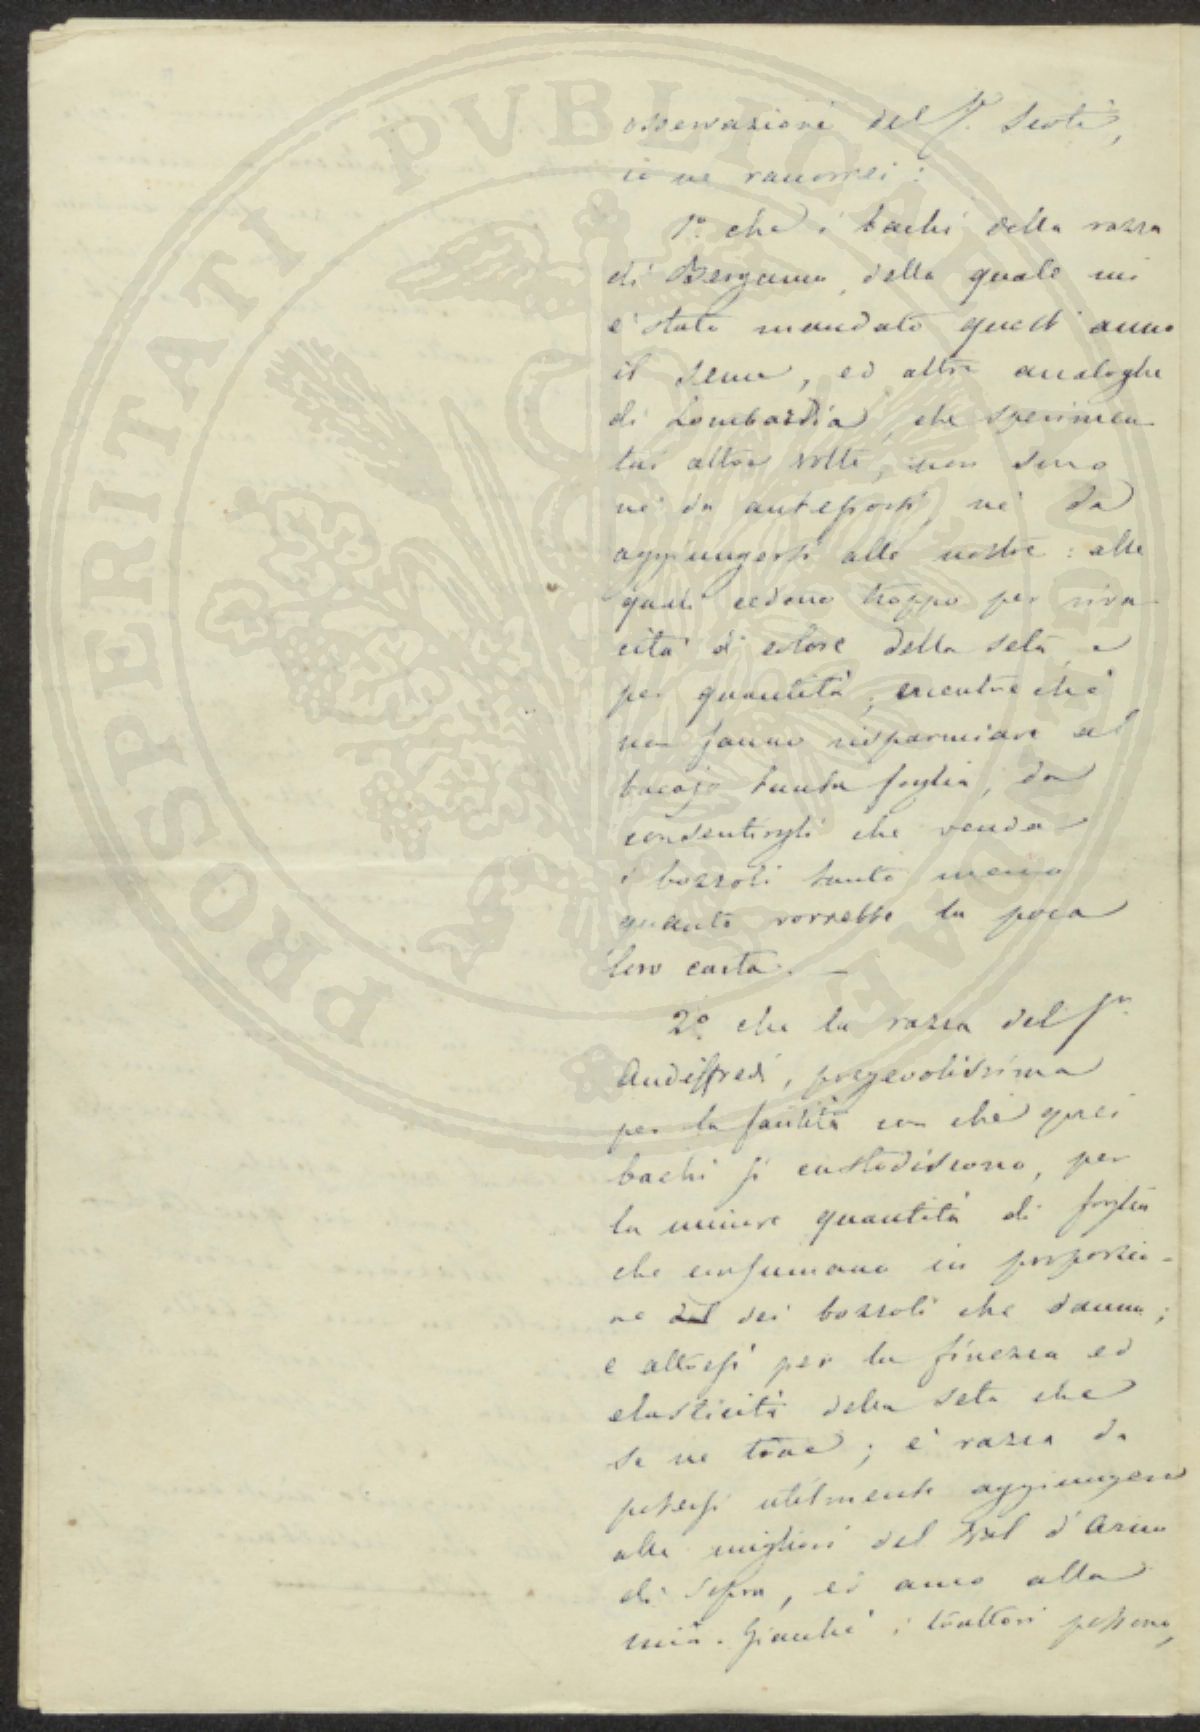 osservazioni del S.r Scoti,
io ne raccorrei:
1.° che i bachi della razza
di Bergamo, della quale mi
è stato mandato quest'anno
il seme, ed altre analoghe
di Lombardia, che sperimen-
tai altre volte, non sono
nè da anteporsi, nè da
aggiungersi alle nostre: alle
quali cedono troppo per viva-
cità di colore della seta, e
per quantità, mentre che
non fanno risparmiare al
bacajo tanta foglia, da
consentirgli che venda
i bozzoli tanto meno
quanto vorrebbe la poca
loro carta. —
2.° che la razza del S.r
Audiffredi, pregevolissima
per la facilità con che quei
bachi si custodiscono, per
la minore quantità di foglia
che consumano in proporzio-
ne dei bozzoli che danno;
e altresì per la finezza ed
elasticità della seta che
se ne trae; è razza da
potersi utilmente aggiungere
alle migliori del Val d'Arno
di sopra, ed anco alla
mia. Giacchè i trattori possono,
PROSPERITATI PUBLICAE AUGENDAE